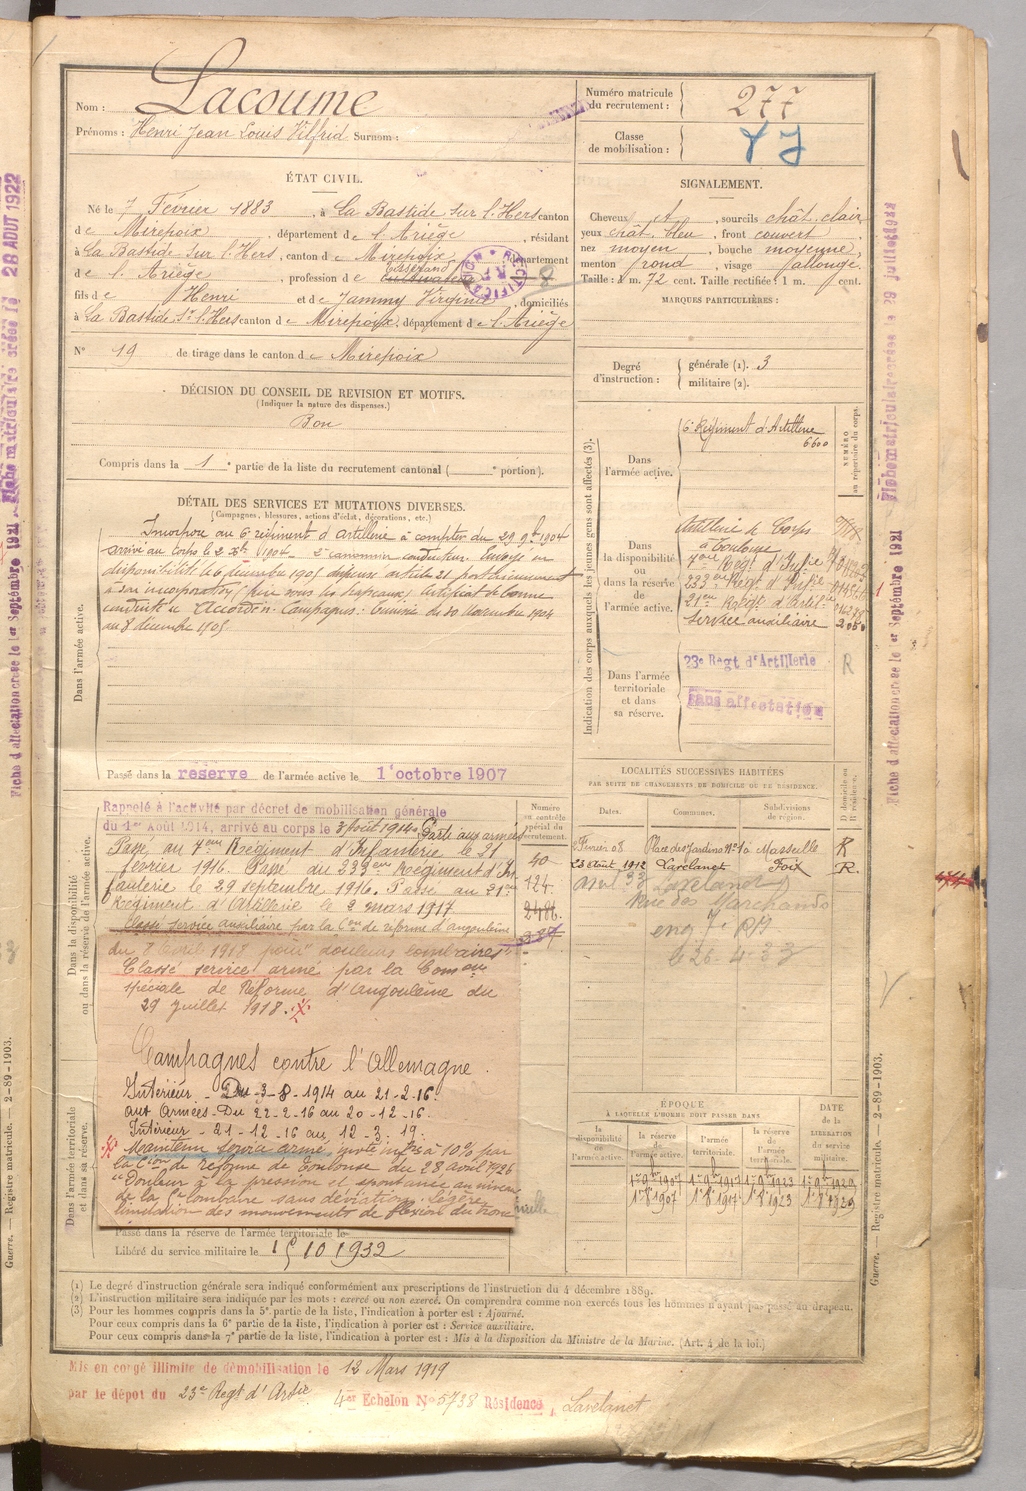 Nom : Lacoume
Prénoms : Henri Jean Louis Vilfrid Surnom :
Numéro matricule du recrutement : 277
Classe de mobilisation :
ÉTAT CIVIL.
Né le 7 Février 1883, à La Bastide sur l'Hers canton
de Mirepoix, département de l'Ariège, résidant
à La Bastide sur l'Hers, canton de Mirepoix, département
de l'Ariège, profession de cultivateur
RECTIFICATION
8
fils de Henri et de Jammy Virginie, domiciliés
à La Bastide Sr l'Hers canton de Mirepoix, département de l'Ariège
N° 19 de tirage dans le canton de Mirepoix
DÉCISION DU CONSEIL DE REVISION ET MOTIFS.
(Indiquer la nature des dispenses.)
Bon
Compris dans la 1e partie de la liste du recrutement cantonal ( e portion).
SIGNALEMENT.
Cheveux et, sourcils chât. clair
yeux chât. bleu, front couvert,
nez moyen, bouche moyenne,
menton rond, visage allongé.
Taille : 1 m. 72 cent. Taille rectifiée : 1 m. cent.
MARQUES PARTICULIÈRES :
Degré d'instruction :
générale (1). 3
militaire (2).
DÉTAIL DES SERVICES ET MUTATIONS DIVERSES.
(Campagnes, blessures, actions d'éclat, décorations, etc.)
Dans l'armée active.
Incorporé au 6e régiment d'artillerie à compter du 29 9bre 1904
arrivé au corps le 2 Xbre 1904. 2e canonnier conducteur. Envoyé en
disponibilité le 6 décembre 1905 dispense article 21 postérieurement
à son incorporation (frère sous les drapeaux) Certificat de bonne
conduite "Accordé". Campagnes : Tunisie du 30 Novembre 1904
au 8 décembre 1905.
Passé dans la réserve de l'armée active le 1er octobre 1907
Indication des corps auxquels les jeunes gens sont affectés (3).
NUMÉRO au répertoire du corps.
Dans l'armée active.
6e Régiment d'Artillerie
6600
Dans la disponibilité ou dans la réserve de l'armée active.
Artillerie de Corps
à Toulouse
7me Régt d'Infie
233me Régt d'Infie
21me Régt d'Artie
Service auxiliaire
Dans l'armée territoriale et dans sa réserve.
23e Regt d'Artillerie
R
sans affectation
Dans la disponibilité ou dans la réserve de l'armée active.
Numéro au contrôle spécial du recrutement.
Rappelé à l'activité par décret de mobilisation générale
du 1er Août 1914, arrivé au corps le 3 août 1914. Parti aux armées
Passé au 7eme Régiment d'Infanterie le 21
février 1916. Passé au 233eme Régiment d'In-
fanterie le 29 septembre 1916. Passé au 21me
Régiment d'Artillerie le 2 mars 1917.
Classé service auxiliaire par la Con de réforme d'angoulême
du 8 avril 1918 pour "douleurs lombaires"
Classé service armé par la Comon
spéciale de Réforme d'Angoulême du
29 juillet 1918.
40
124.
2486.
Campagnes contre l'Allemagne.
Intérieur. - Du - 3 - 8 - 1914 au 21 - 2 - 16.
aux Armées - Du 22 - 2 - 16 au 20 - 12 - 16.
Intérieur - 21 - 12 - 16 au 12 - 3 - 19.
Maintenu service armé, invté infre à 10% par
la Cion de réforme de Toulouse du 28 avril 1936
"Douleur à la pression et spontanée au niveau
de la lombaire sans déviation. Légère
limitation des mouvements de flexion du tronc
Dans l'armée territoriale et dans sa réserve.
Passé dans la réserve de l'armée territoriale le
Libéré du service militaire le 15 10 1932
LOCALITÉS SUCCESSIVES HABITÉES
PAR SUITE DE CHANGEMENTS DE DOMICILE OU DE RÉSIDENCE.
Dates. Communes. Subdivisions de région. D domicile ou R résidence.
2 Février 08 Place des Jardins N° 10 Marseille R
23 août 1912 Lavelanet Foix R.
avril 33 Lavelanet D
Rue des Marchands
eng 7e RA
le 26-4-33
ÉPOQUE
À LAQUELLE L'HOMME DOIT PASSER DANS
la disponibilité de l'armée active.
la réserve de l'armée active.
l'armée territoriale.
la réserve de l'armée territoriale.
DATE de la LIBÉRATION du service militaire.
1er 9bre 1907 1er 9bre 1917 1er 9bre 1923 1er 9bre 1929
1er 8bre 1907 1er 8bre 1917 1er 8bre 1923 1er 8bre 1929
(1) Le degré d'instruction générale sera indiqué conformément aux prescriptions de l'instruction du 4 décembre 1889.
(2) L'instruction militaire sera indiquée par les mots : exercé ou non exercé. On comprendra comme non exercés tous les hommes n'ayant pas passé au drapeau.
(3) Pour les hommes compris dans la 5e partie de la liste, l'indication à porter est : Ajourné.
Pour ceux compris dans la 6e partie de la liste, l'indication à porter est : Service auxiliaire.
Pour ceux compris dans la 7e partie de la liste, l'indication à porter est : Mis à la disposition du Ministre de la Marine. (Art. 4 de la loi.)
Mis en congé illimité de démobilisation le 12 Mars 1919
par le dépot du 23e Regt d'Artie 4er Echelon N° 5738 Résidence, Lavelanet
Guerre. — Registre matricule. — 2-89-1903.
Guerre. — Registre matricule. — 2-89-1903.
Fiche d'affectation créée le 1er Septembre 1921
Fiche matriculaire créée le 28 AOUT 1922
Fiche d'affectation créée le 1er Septembre 1921
Fiche matriculaire créée le 29 juillet